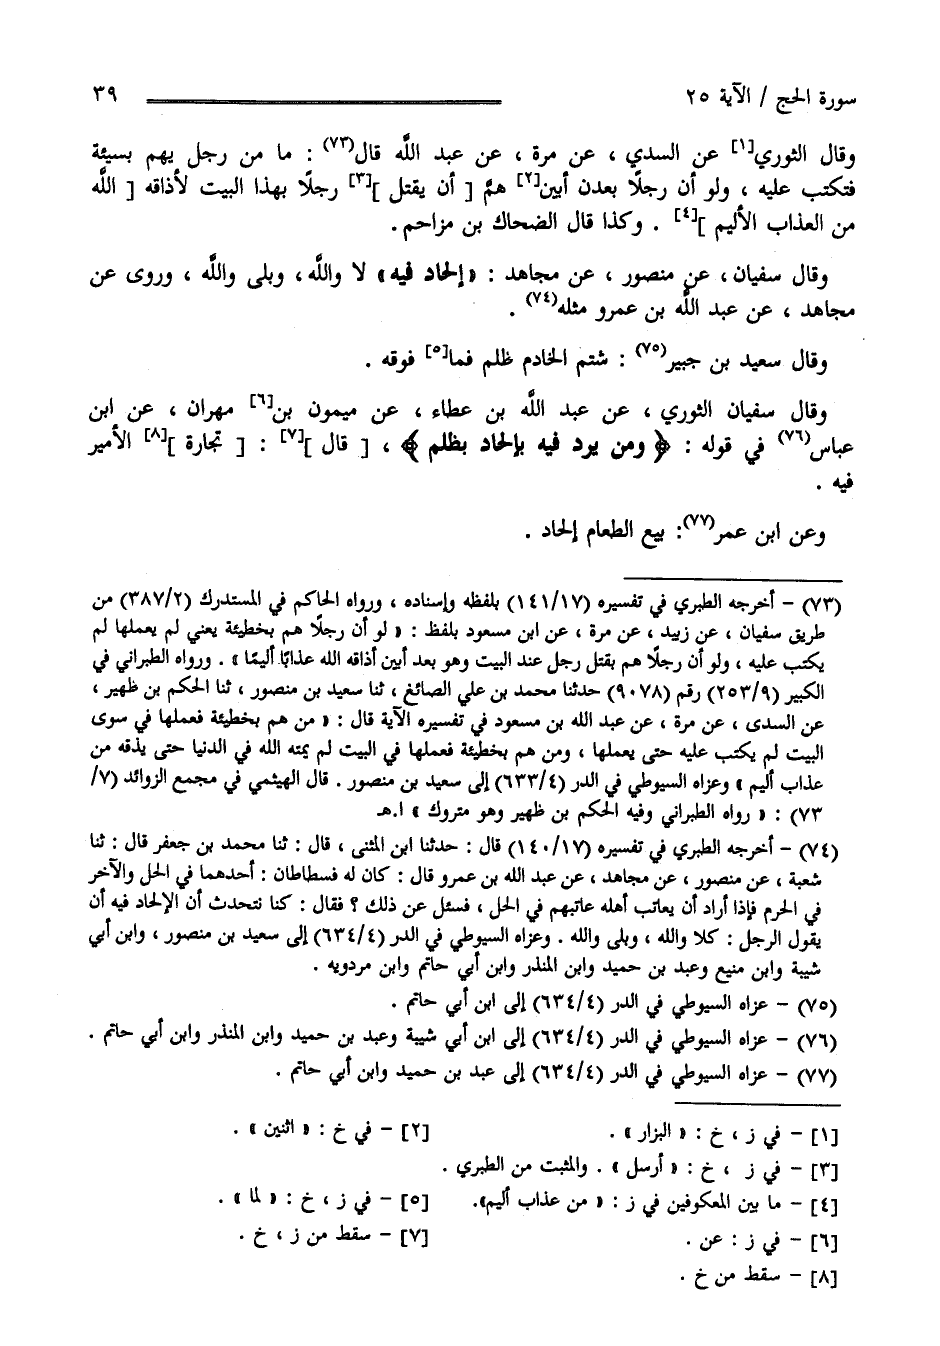 سورة الحج / الآية ٢٥ ٣٩
وقال الثوري[١] عن السدي ، عن مرة ، عن عبد اللَّه قال(٧٣) : ما من رجل يهم بسيئة
فتكتب عليه ، ولو أن رجلًا بعدن أبين[٢] همَّ [ أن يقتل ][٣] رجلًا بهذا البيت لأذاقه [ اللَّه
من العذاب الأليم ][٤] . وكذا قال الضحاك بن مزاحم .
وقال سفيان ، عن منصور ، عن مجاهد : ﴿إلحاد فيه﴾ لا واللَّه ، وبلى واللَّه ، وروى عن
مجاهد ، عن عبد اللَّه بن عمرو مثله(٧٤) .
وقال سعيد بن جبير(٧٥) : شتم الخادم ظلم فما[٥] فوقه .
وقال سفيان الثوري ، عن عبد اللَّه بن عطاء ، عن ميمون بن[٦] مهران ، عن ابن
عباس(٧٦) في قوله : ﴿ ومن يرد فيه بإلحاد بظلم ﴾ ، [ قال ][٧] : [ تجارة ][٨] الأمير
فيه .
وعن ابن عمر(٧٧): بيع الطعام إلحاد .
(٧٣) – أخرجه الطبري في تفسيره (١٤١/١٧) بلفظه وإسناده ، ورواه الحاكم في المستدرك (٣٨٧/٢) من
طريق سفيان ، عن زبيد ، عن مرة ، عن ابن مسعود بلفظ : « لو أن رجلًا هم بخطيئة يعني لم يعملها لم
يكتب عليه ، ولو أن رجلًا هم بقتل رجل عند البيت وهو بعد أبين أذاقه الله عذابًا أليمًا » . ورواه الطبراني في
الكبير (٢٥٣/٩) رقم (٩٠٧٨) حدثنا محمد بن علي الصائغ ، ثنا سعيد بن منصور ، ثنا الحكم بن ظهير ،
عن السدى ، عن مرة ، عن عبد الله بن مسعود في تفسيره الآية قال : « من هم بخطيئة فعملها في سوى
البيت لم يكتب عليه حتى يعملها ، ومن هم بخطيئة فعملها في البيت لم يمته الله في الدنيا حتى يذقه من
عذاب أليم » وعزاه السيوطي في الدر (٦٣٣/٤) إلى سعيد بن منصور . قال الهيثمي في مجمع الزوائد (٧/
٧٣) : « رواه الطبراني وفيه الحكم بن ظهير وهو متروك » ا.هـ
(٧٤) – أخرجه الطبري في تفسيره (١٤٠/١٧) قال : حدثنا ابن المثنى ، قال : ثنا محمد بن جعفر قال : ثنا
شعبة ، عن منصور ، عن مجاهد ، عن عبد الله بن عمرو قال : كان له فسطاطان : أحدهما في الحل والآخر
في الحرم فإذا أراد أن يعاتب أهله عاتبهم في الحل ، فسئل عن ذلك ؟ فقال : كنا نتحدث أن الإلحاد فيه أن
يقول الرجل : كلا والله ، وبلى والله . وعزاه السيوطي في الدر (٦٣٤/٤) إلى سعيد بن منصور ، وابن أبي
شيبة وابن منيع وعبد بن حميد وابن المنذر وابن أبي حاتم وابن مردويه .
(٧٥) – عزاه السيوطي في الدر (٦٣٤/٤) إلى ابن أبي حاتم .
(٧٦) – عزاه السيوطي في الدر (٦٣٤/٤) إلى ابن أبي شيبة وعبد بن حميد وابن المنذر وابن أبي حاتم .
(٧٧) – عزاه السيوطي في الدر (٦٣٤/٤) إلى عبد بن حميد وابن أبي حاتم .
[١] – في ز ، خ : « البزار » . [٢] – في خ : « اثنين » .
[٣] – في ز ، خ : « أرسل » . والمثبت من الطبري .
[٤] – ما بين المعكوفين في ز : « من عذاب أليم». [٥] – في ز ، خ : « لما » .
[٦] – في ز : عن . [٧] – سقط من ز ، خ .
[٨] – سقط من خ .